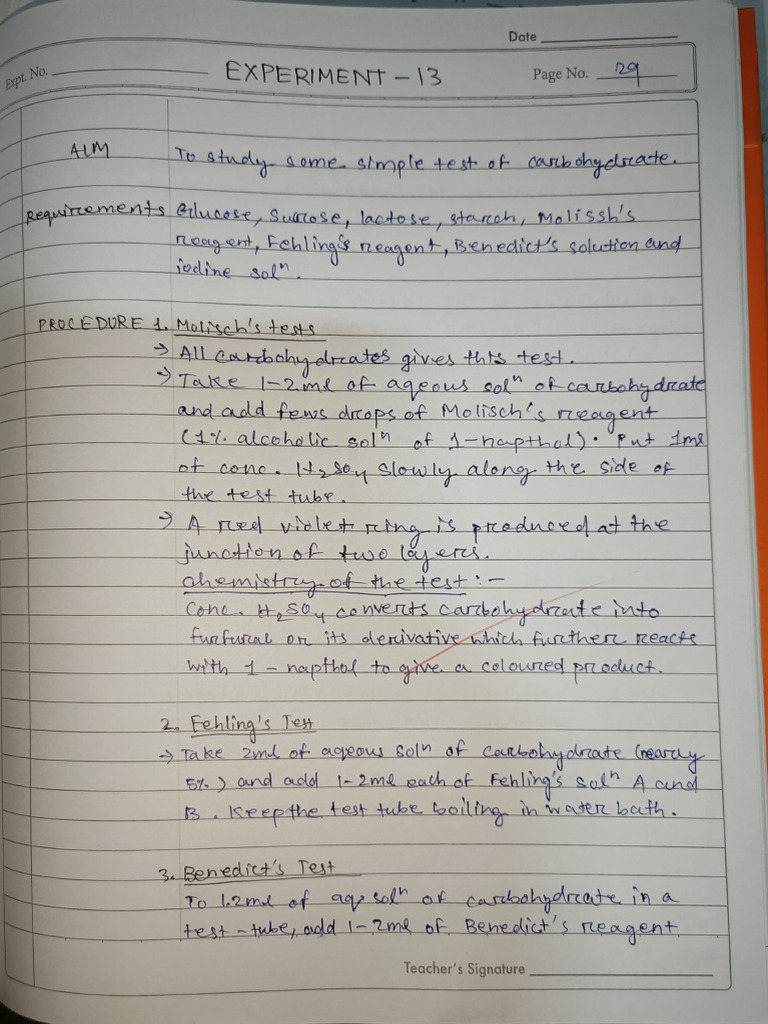 Date
Expt. No. EXPERIMENT - 13 Page No. 29
AIM To study some simple test of carbohydrate.
Requirements Glucose, Sucrose, lactose, starch, Molissh's
reagent, Fehling's reagent, Benedict's solution and
iodine solⁿ.
PROCEDURE 1. Molisch's tests
→ All carbohydrates gives this test.
→ Take 1-2ml of aqeous solⁿ of carbohydrate
and add fews drops of Molisch's reagent
(1% alcoholic solⁿ of 1-napthol). Put 1ml
of conc. H₂SO₄ slowly along the side of
the test tube.
→ A red violet ring is produced at the
junction of two layers.
chemistry of the test :-
Conc. H₂SO₄ converts carbohydrate into
furfural or its derivative which further reacts
with 1-napthol to give a coloured product.
2. Fehling's Test
→ Take 2ml of aqeous solⁿ of carbohydrate (nearly
5%) and add 1-2ml each of Fehling's solⁿ A and
B. Keep the test tube boiling in water bath.
3. Benedict's Test
To 1.2ml of aqe solⁿ of carbohydrate in a
test-tube, add 1-2ml of Benedict's reagent
Teacher's Signature